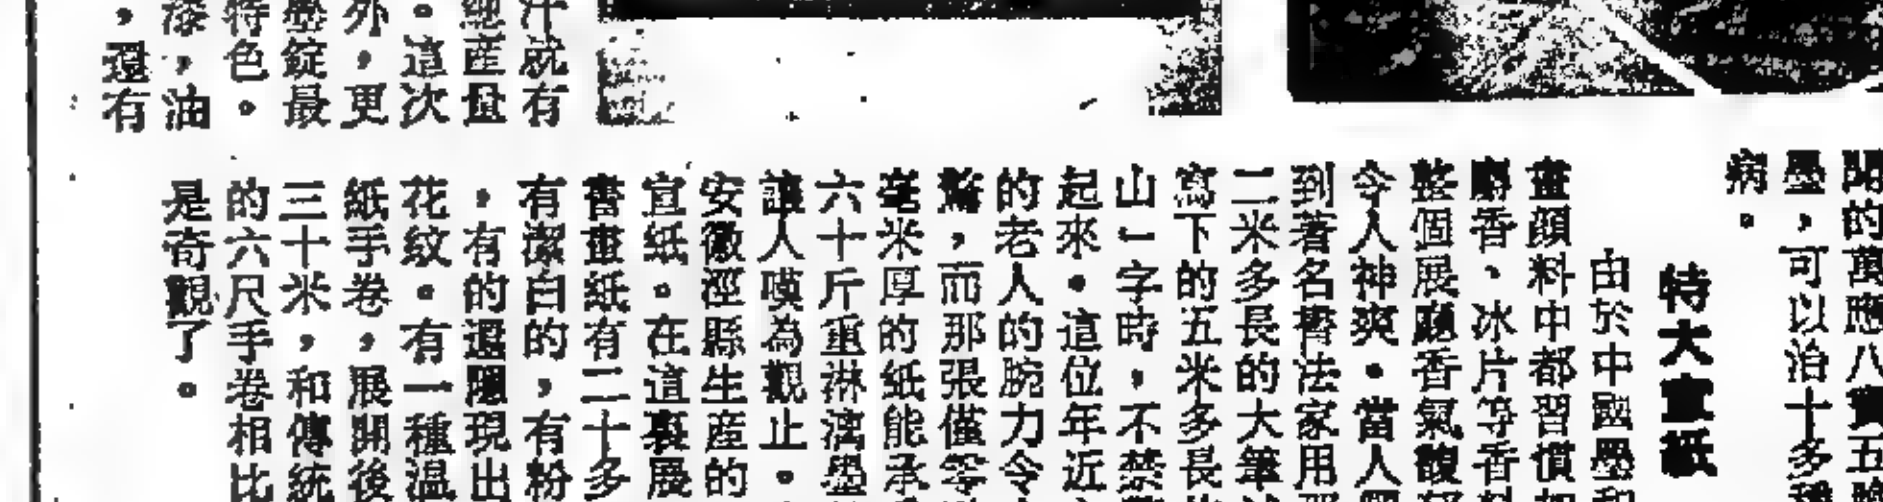 汁就有
產量
。這次
外，更
墨錠最
特色。
漆，油
，還有
開的萬應八寶五
墨，可以治十多種
病。
特大宣紙
由於中國墨和
畫顏料中都習慣加
麝香、冰片等香料
整個展廳香氣馥郁
令人神爽。當人們
到著名書法家用那
二米多長的大筆
寫下的五米多長
山」字時，不禁
起來。這位年近
的老人的腕力令
驚，而那張僅零
毫米厚的紙能承
六十斤重淋漓墨
讓人嘆為觀止。
安徽涇縣生產的
宣紙。在這裏展
書畫紙有二十多
有潔白的，有粉
，有的還隱現出
花紋。有一種溫
紙手卷，展開後
三十米，和傳統
的六尺手卷相比
是奇觀了。